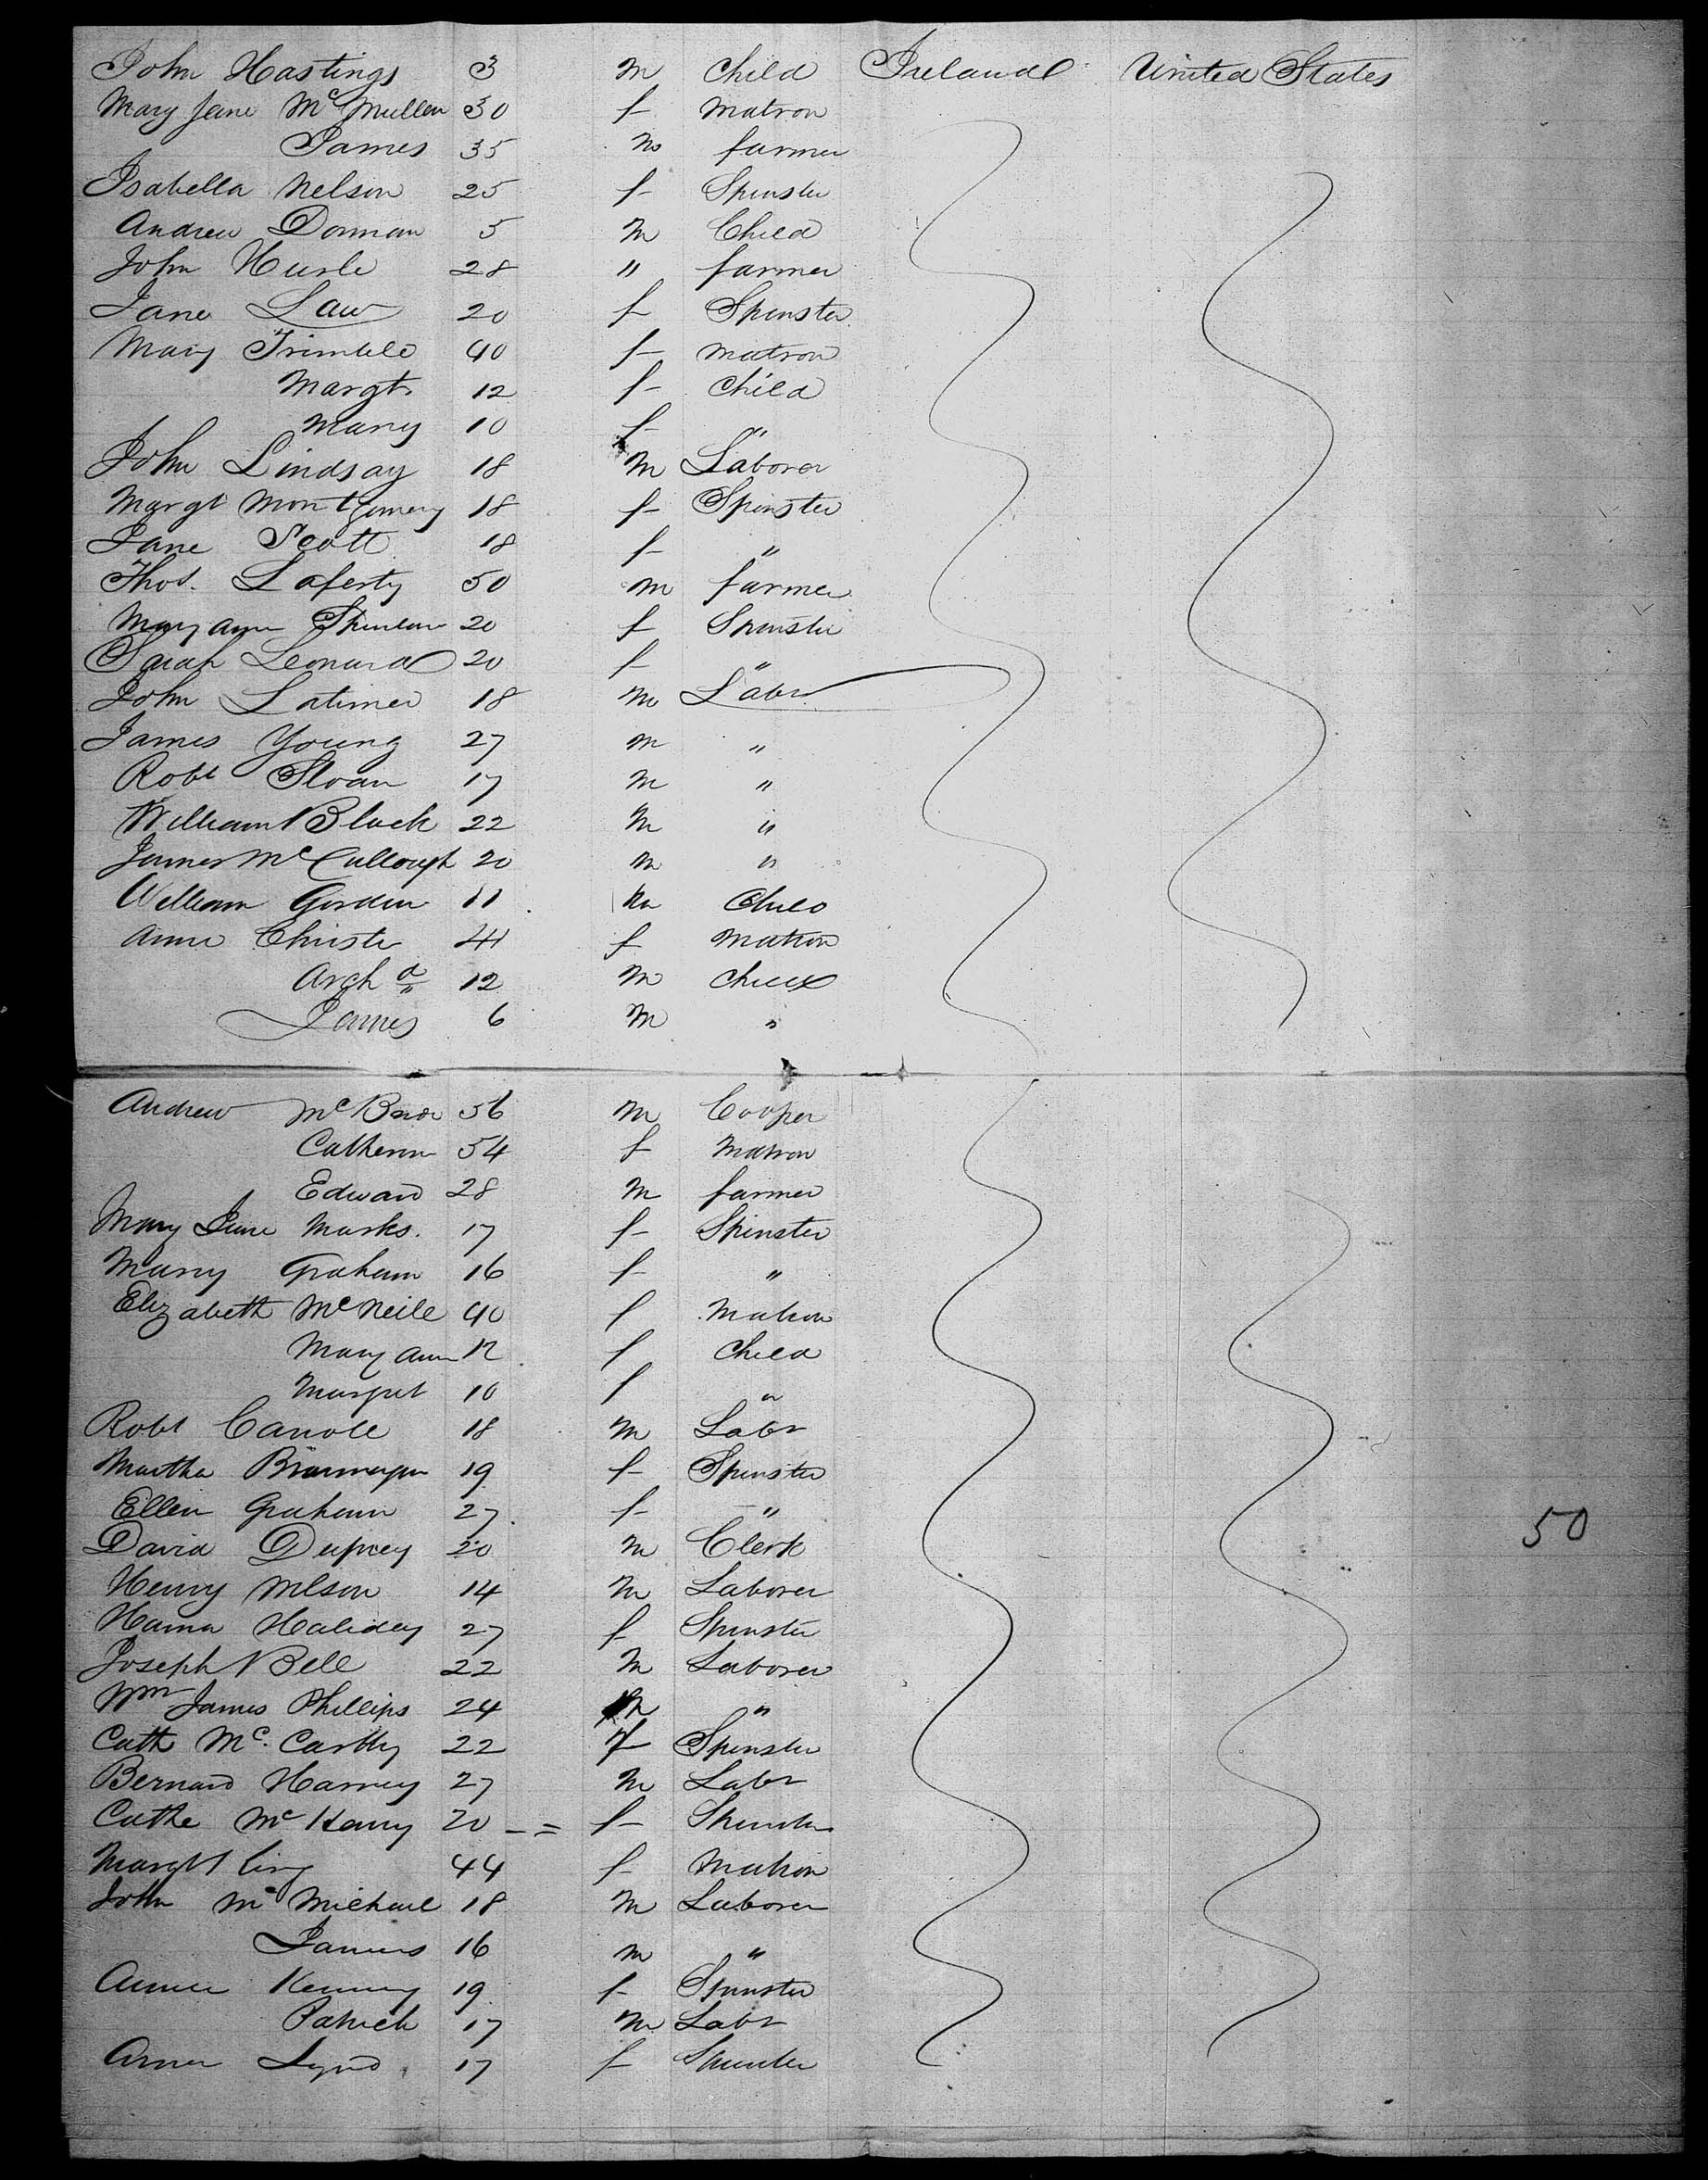 John Hastings 3 m Child Ireland United States
Mary Jane McMullen 30 f matron
James 35 m farmer
Isabella Nelson 25 f Spinster
Andrew Dorman 5 m Child
John 28 " farmer
Jane Law 20 f Spinster
Mary Trimble 40 f matron
Margt. 12 f Child
Mary 10 f "
John Lindsay 18 m Laborer
Margt Montgomery 18 f Spinster
Jane Scott 18 f "
Thos. Laferty 50 m farmer
Mary Ann 20 f Spinster
Sarah Leonard 20 f "
John Latimer 18 m Labr
James Young 27 m "
Robt Sloan 17 m "
William Black 22 m "
James McCullough 20 m "
William Gordon 11 m Child
Anne Christe 41 f Matron
Archd 12 m Child
James 6 m "
Andrew 56 m Cooper
Catherine 54 f Matron
Edward 28 m farmer
Mary Jane Marks. 17 f Spinster
Mary Graham 16 f "
Elizabeth McNeile 40 f Matron
Mary Ann 12 f Child
Margret 10 f "
Robt 18 m Labr
Martha 19 f Spinster
Ellen Graham 27 f "
David 20 m Clerk 50
Henry Wilson 14 m Laborer
Hanna Haliday 27 f Spinster
Joseph Bell 22 m Laborer
Wm James Phillips 24 m "
Cath Mc. Carthy 22 f Spinster
Bernard Harvey 27 m Labr
Cathe 20 f Spinster
Margt King 44 f Matron
John McMichael 18 m Laborer
James 16 m "
Kenny 19 f Spinster
Patrick 17 m Labr
Lynd 17 f Spinster